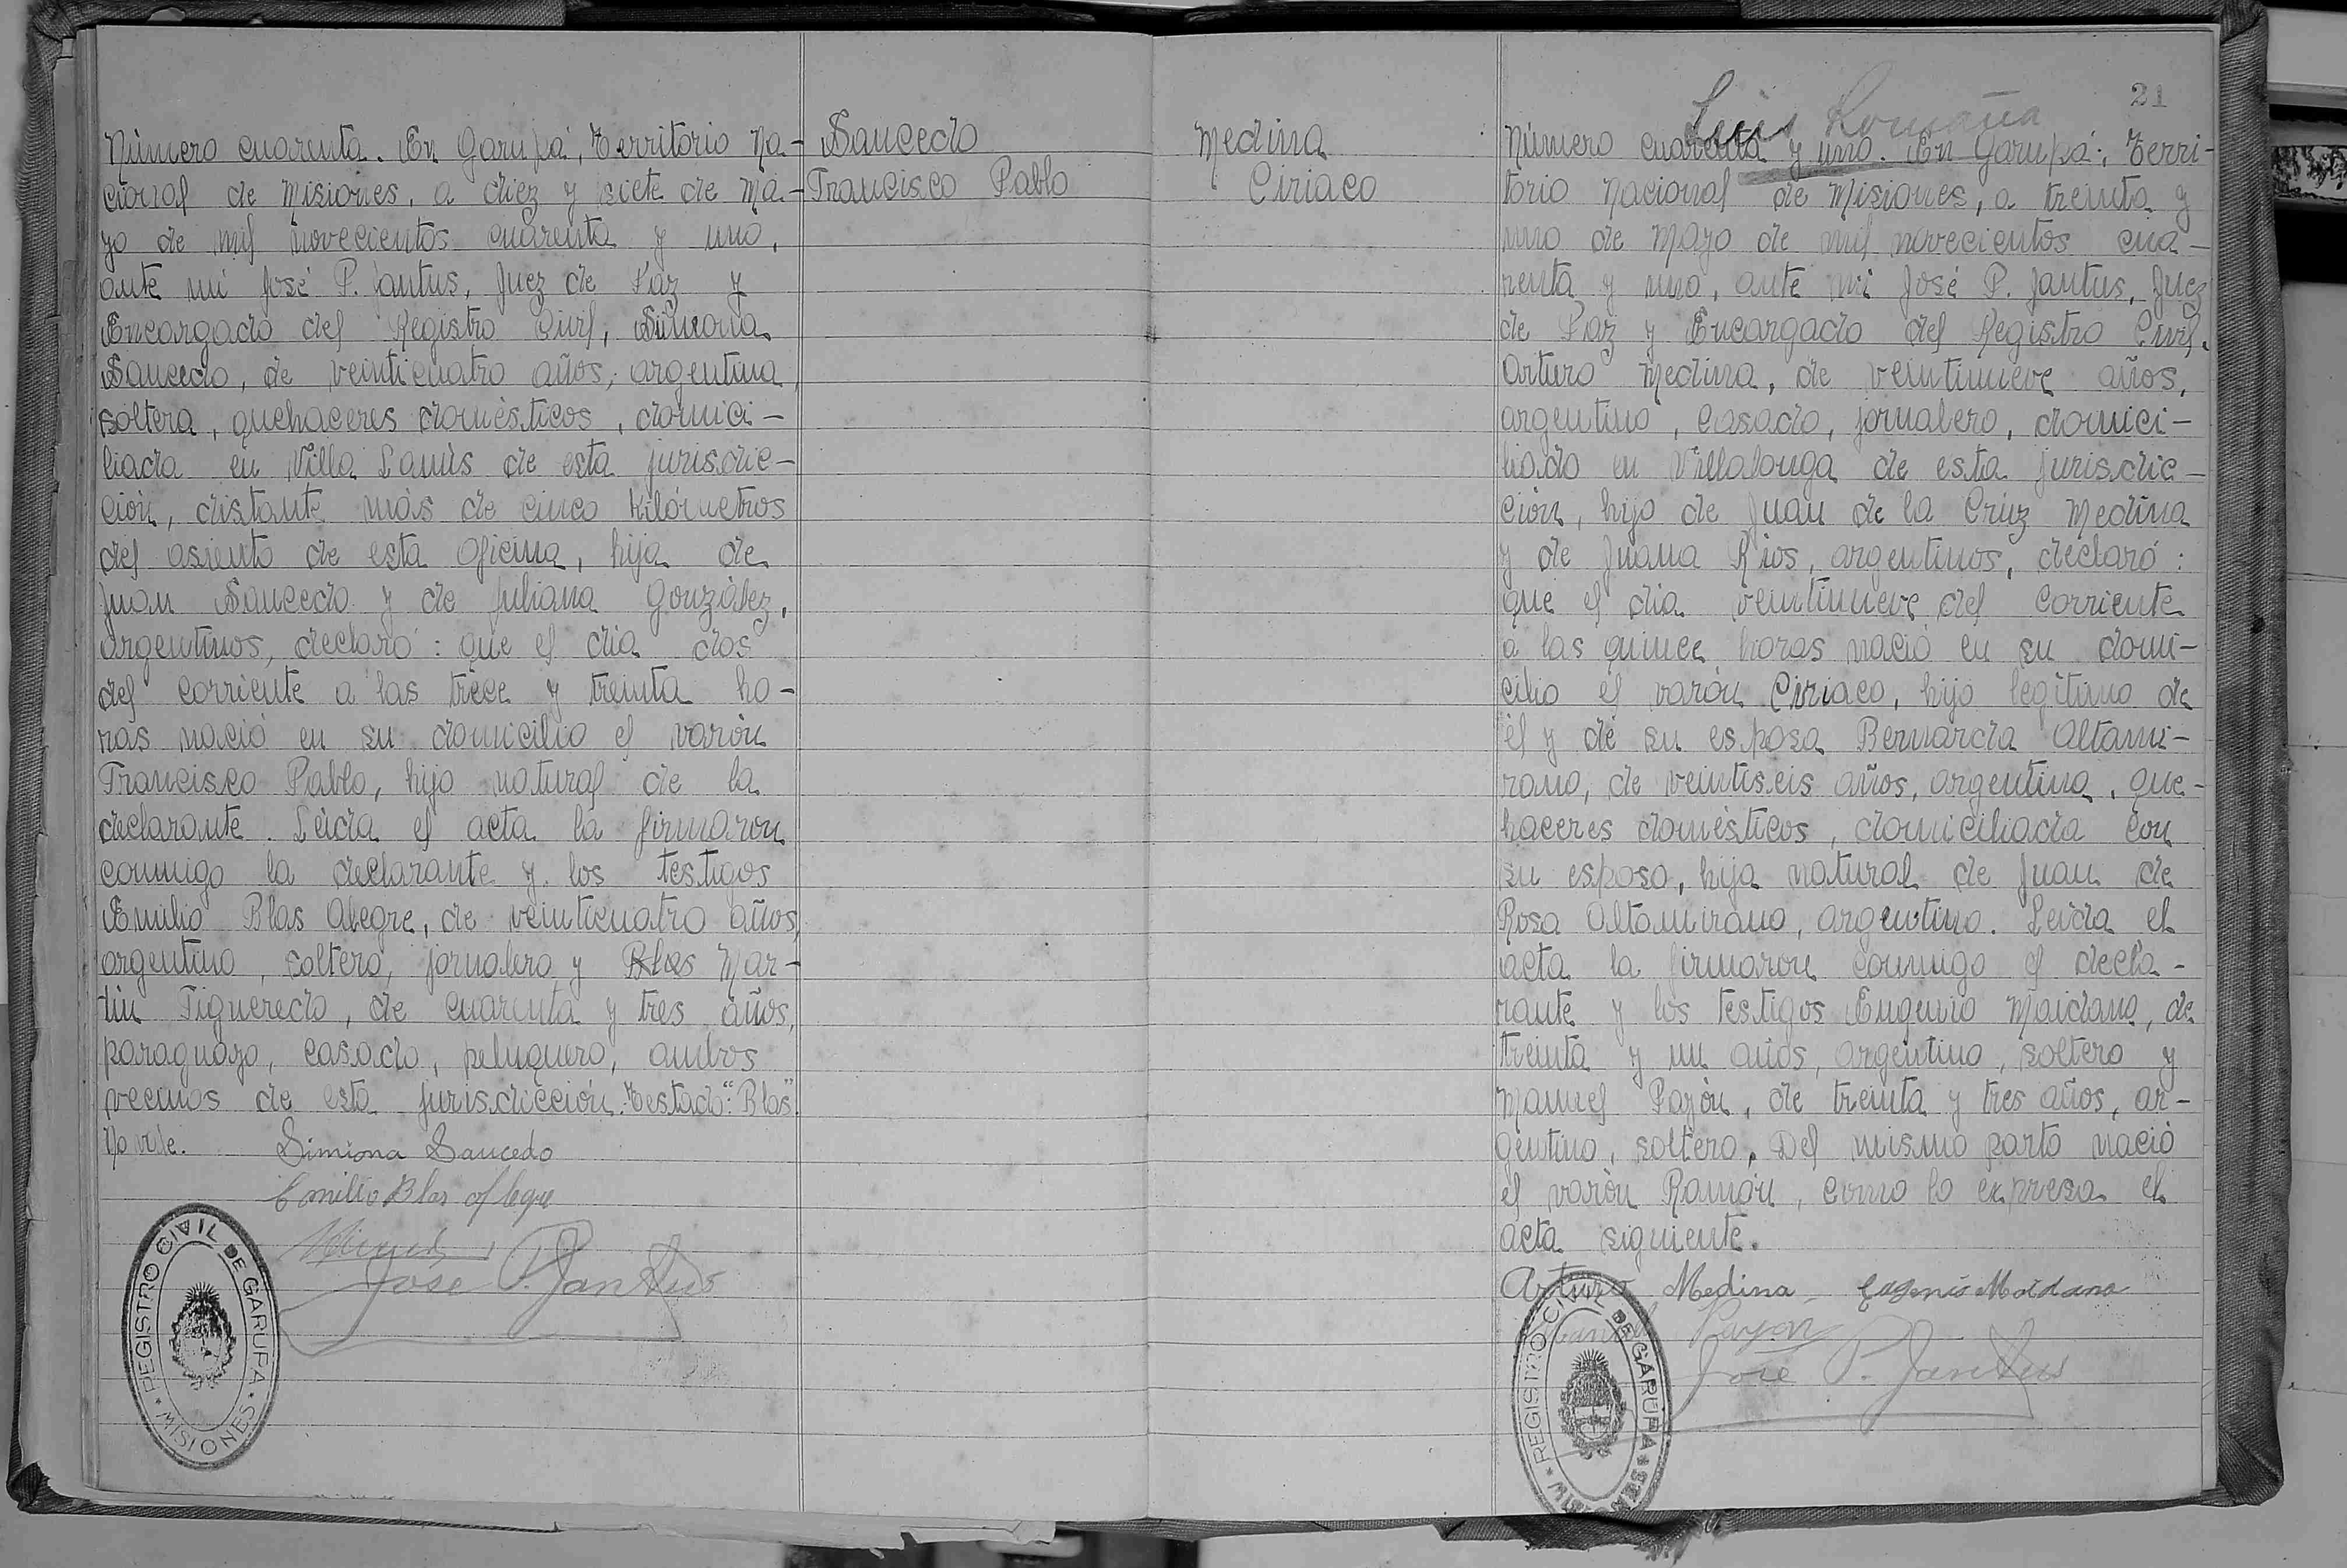 Número cuarenta. En Garupá, Territorio Na-
cional de Misiones, a diez y siete de Ma-
yo de mil novecientos cuarenta y uno,
ante mí José P. Jantus, Juez de Paz y
Encargado del Registro Civil, Simiona
Saucedo, de veinticuatro años, argentina,
soltera, quehaceres domésticos, domici-
liada en Villa Lanús de esta jurisdic-
ción, distante más de cinco kilómetros
del asiento de esta Oficina, hija de
Juan Saucedo y de Juliana González,
argentinos, declaró: que el día dos
del corriente a las trece y treinta ho-
ras nació en su domicilio el varón
Francisco Pablo, hijo natural de la
declarante. Leída el acta la firmaron
conmigo la declarante y los testigos
Emilio Blas Alegre, de veinticuatro años,
argentino, soltero, jornalero y Blas Mar-
tín Figueredo, de cuarenta y tres años,
paraguayo, casado, peluquero, ambos
vecinos de esta jurisdicción. Testado: "Blas".
No vale.
Simiona Saucedo
Emilio Blas Alegre
José P. Jantus
REGISTRO CIVIL DE GARUPA
MISIONES
Saucedo
Francisco Pablo
Medina
Ciriaco
21
Luis Romaña
Número cuarenta y uno. En Garupá, Terri-
torio Nacional de Misiones, a treinta y
uno de Mayo de mil novecientos cua-
renta y uno, ante mí José P. Jantus, Juez
de Paz y Encargado del Registro Civil,
Arturo Medina, de veintinueve años,
argentino, casado, jornalero, domici-
liado en Villalonga de esta jurisdic-
ción, hijo de Juan de la Cruz Medina
y de Juana Ríos, argentinos, declaró:
que el día veintinueve del corriente
a las quince horas nació en su domi-
cilio el varón Ciriaco, hijo legítimo de
él y de su esposa Bernarda Altami-
rano, de veintiseis años, argentina, que-
haceres domésticos, domiciliada con
su esposo, hija natural de Juan de
Rosa Altamirano, argentino. Leída el
acta la firmaron conmigo el decla-
rante y los testigos Eugenio Maidana, de
treinta y un años, argentino, soltero y
Manuel Payón, de treinta y tres años, ar-
gentino, soltero. Del mismo parto nació
el varón Ramón, como lo expresa el
acta siguiente.
Arturo Medina Eugenio Maidana
Payon
José P. Jantus
REGISTRO CIVIL DE GARUPA